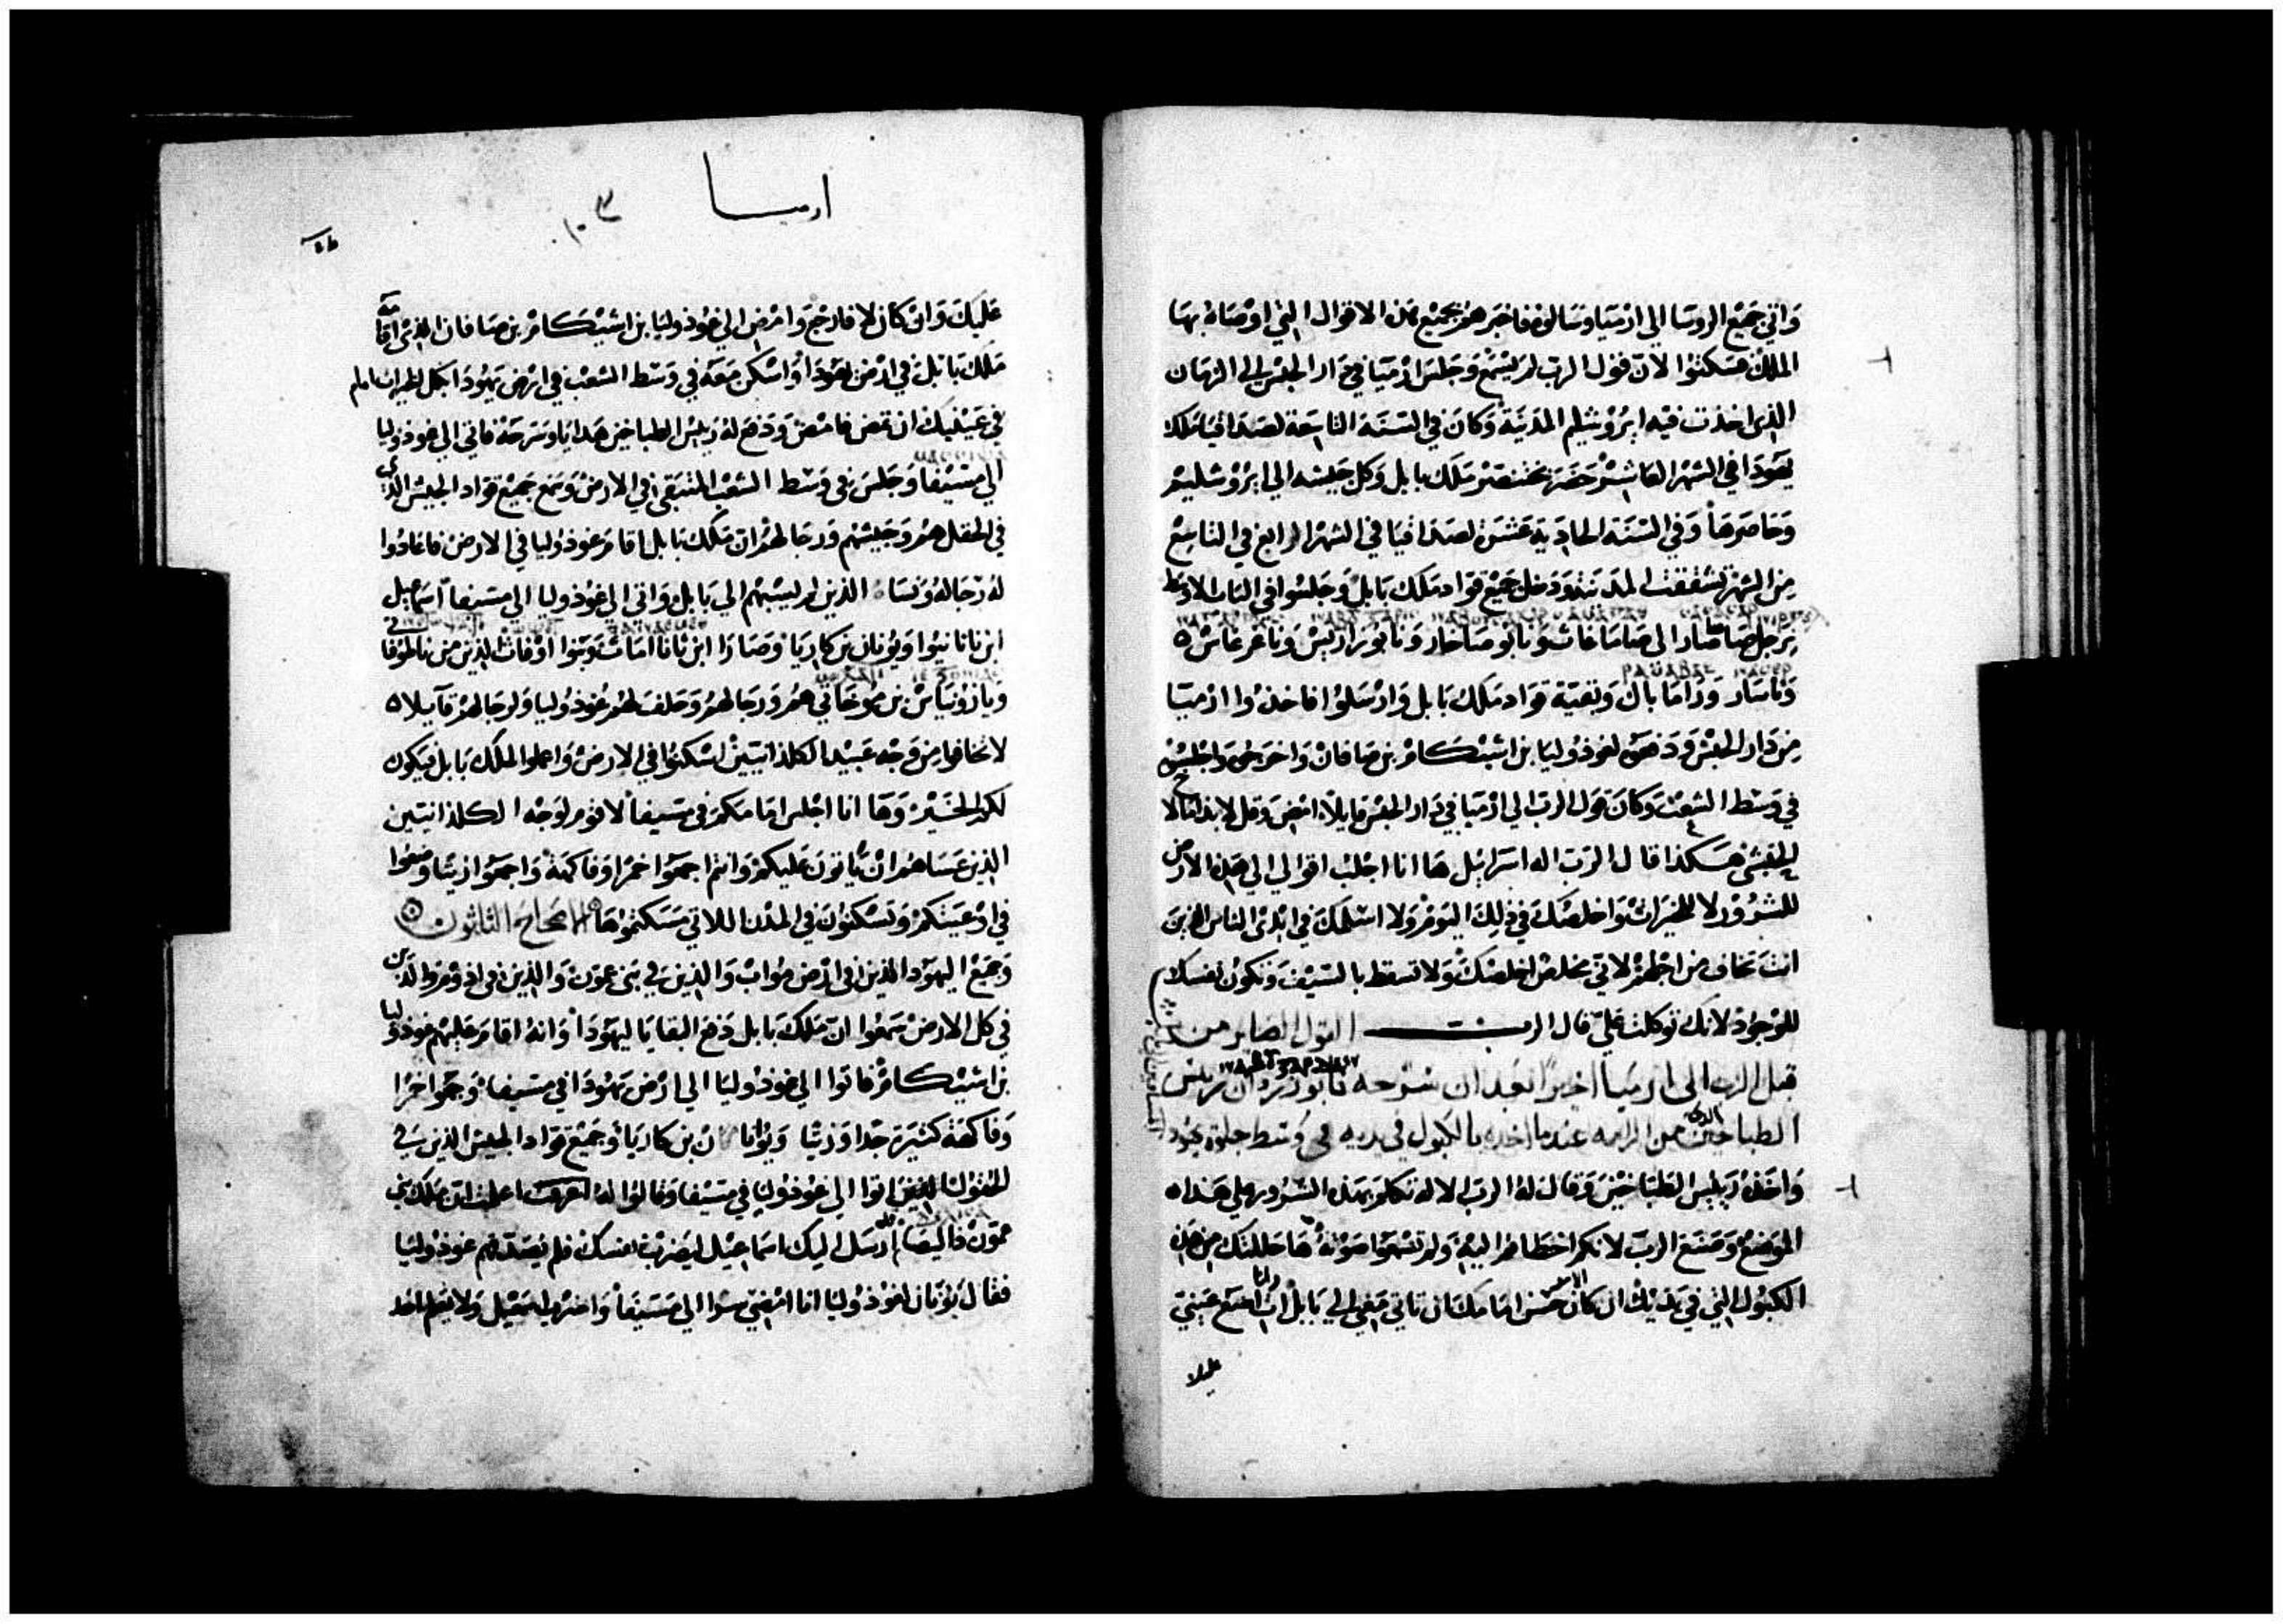 واتي جميع الروسا الي ارميا وسالوه فاخبرهم بجميع هذه الاقوال التي اوصاه بها
الملك فسكتوا لان قول الرب لم يسمع وجلس ارميا في دار الحبس الي الزمان
الذي اخذت فيه ايروشليم المدينة وكان في السنة التاسعة لصداقيا ملك
يهودا في الشهر العاشر حضر بختنصر ملك بابل وكل جيشه الي ايروشليم
وحاصرها وفي السنة الحادية عشر لصداقيا في الشهر الرابع في التاسع
من الشهر تشققت المدينة ودخل جميع قواد ملك بابل وجلسوا في الباب الاوسط
صاماغات ونابو صاخار ونابو
وراما باك وبقية قواد ملك بابل وارسلوا فاخذوا ارميا
من دار الحبس ودفعوه لغوذوليا بن اشيكام بن صافان واخرجوه واجلسوه
في وسط الشعب وكان قول الرب الي ارميا في دار الحبس قايلا امض وقل
الحبشي هكذا قال الرب اله اسرايل ها انا اجلب اقوالي الي هذه الارض
للشرور لا للخيرات واخلصك في ذلك اليوم ولا اسلمك في ايدي الناس الذين
انت تخاف من اجلهم لاني مخلص اخلصك ولا تسقط بالسيف وتكون نفسك
للوجود لانك توكلت علي قال الرب القول الصاير من
قبل الرب الي ارميا اخيرا بعد ان سرحه ريس
الطباخين الذي من الرامه عندما اخذه بالكبول في يديه في وسط جلوة يهودا
واخذه ريس الطباخين وقال له الرب الاله تكلم بهذه الشرور علي هذا
الموضع وصنع الرب لانكم اخطاتم اليه ولم تسمعوا صوته ها حللتك من هذه
الكبول التي في يديك ان كان حسن امامك ان تاتي معي الي بابل ات عيني
عليك
ارميا
١٠٣
عليك وان كان لا فارجع وامض الي غوذوليا بن اشيكام بن صافان الذي اقامه
ملك بابل في ارض يهودا واسكن معه في وسط الشعب في ارض يهودا بكل الخيرات امام
في عينيك ان تمض فامض ودفع له ريس الطباخين هدايا وسرحه فاتي الي غوذوليا
الي مسيفا وجلس في وسط الشعب المتبقي في الارض وسمع جميع قواد الجيش الذي
في الحقل هم وجيشهم ورجالهم ان ملك بابل اقام غوذوليا في الارض
له رجاله ونسا الذين لم يسبهم الي بابل واتي الي غوذوليا الي مسيفا اسماعيل
ابن ناثانيوا ويونان بن كاريا وصارا ابن وبنوا الذين من
بن هم ورجالهم وحلف لهم غوذوليا ولرجالهم قايلا
لا تخافوا من وجه عبيد الكلدانيين اسكنوا في الارض واعملوا لملك بابل فيكون
لكم الخير وها انا اجلس امامكم في مسيفا لاقوم لوجه الكلدانيين
الذين عساهم ان ياتون عليكم وانتم اجمعوا خمرا وفاكهة واجمعوا زيتا وضعوا
في اوعيتكم وتسكنون في المدن اللاتي مسكتموها الاصحاح الثلثون
وجميع اليهود الذين في ارض مواب والذين في بني عمون والذين في ادوم والذين
في كل الارض سمعوا ان ملك بابل دفع البقايا ليهودا وانه اقام عليهم غوذوليا
بن اشيكام فاتوا الي غوذوليا الي ارض يهودا في مسيفا وجمعوا خمرا
وفاكهة كثيرة جدا وزيتا ويونان بن كاريا وجميع قواد الجيش الذين في
الحقول اتوا الي غوذوليا في مسيفا وقالوا له اعلمت ان ملك بني
عمون ارسل اليك اسماعيل ليضرب نفسك فلم يصدقهم غوذوليا
فقال يونان لغوذوليا انا امضي سرا الي مسيفا واضرب اسمعيل ولا يعلم احد